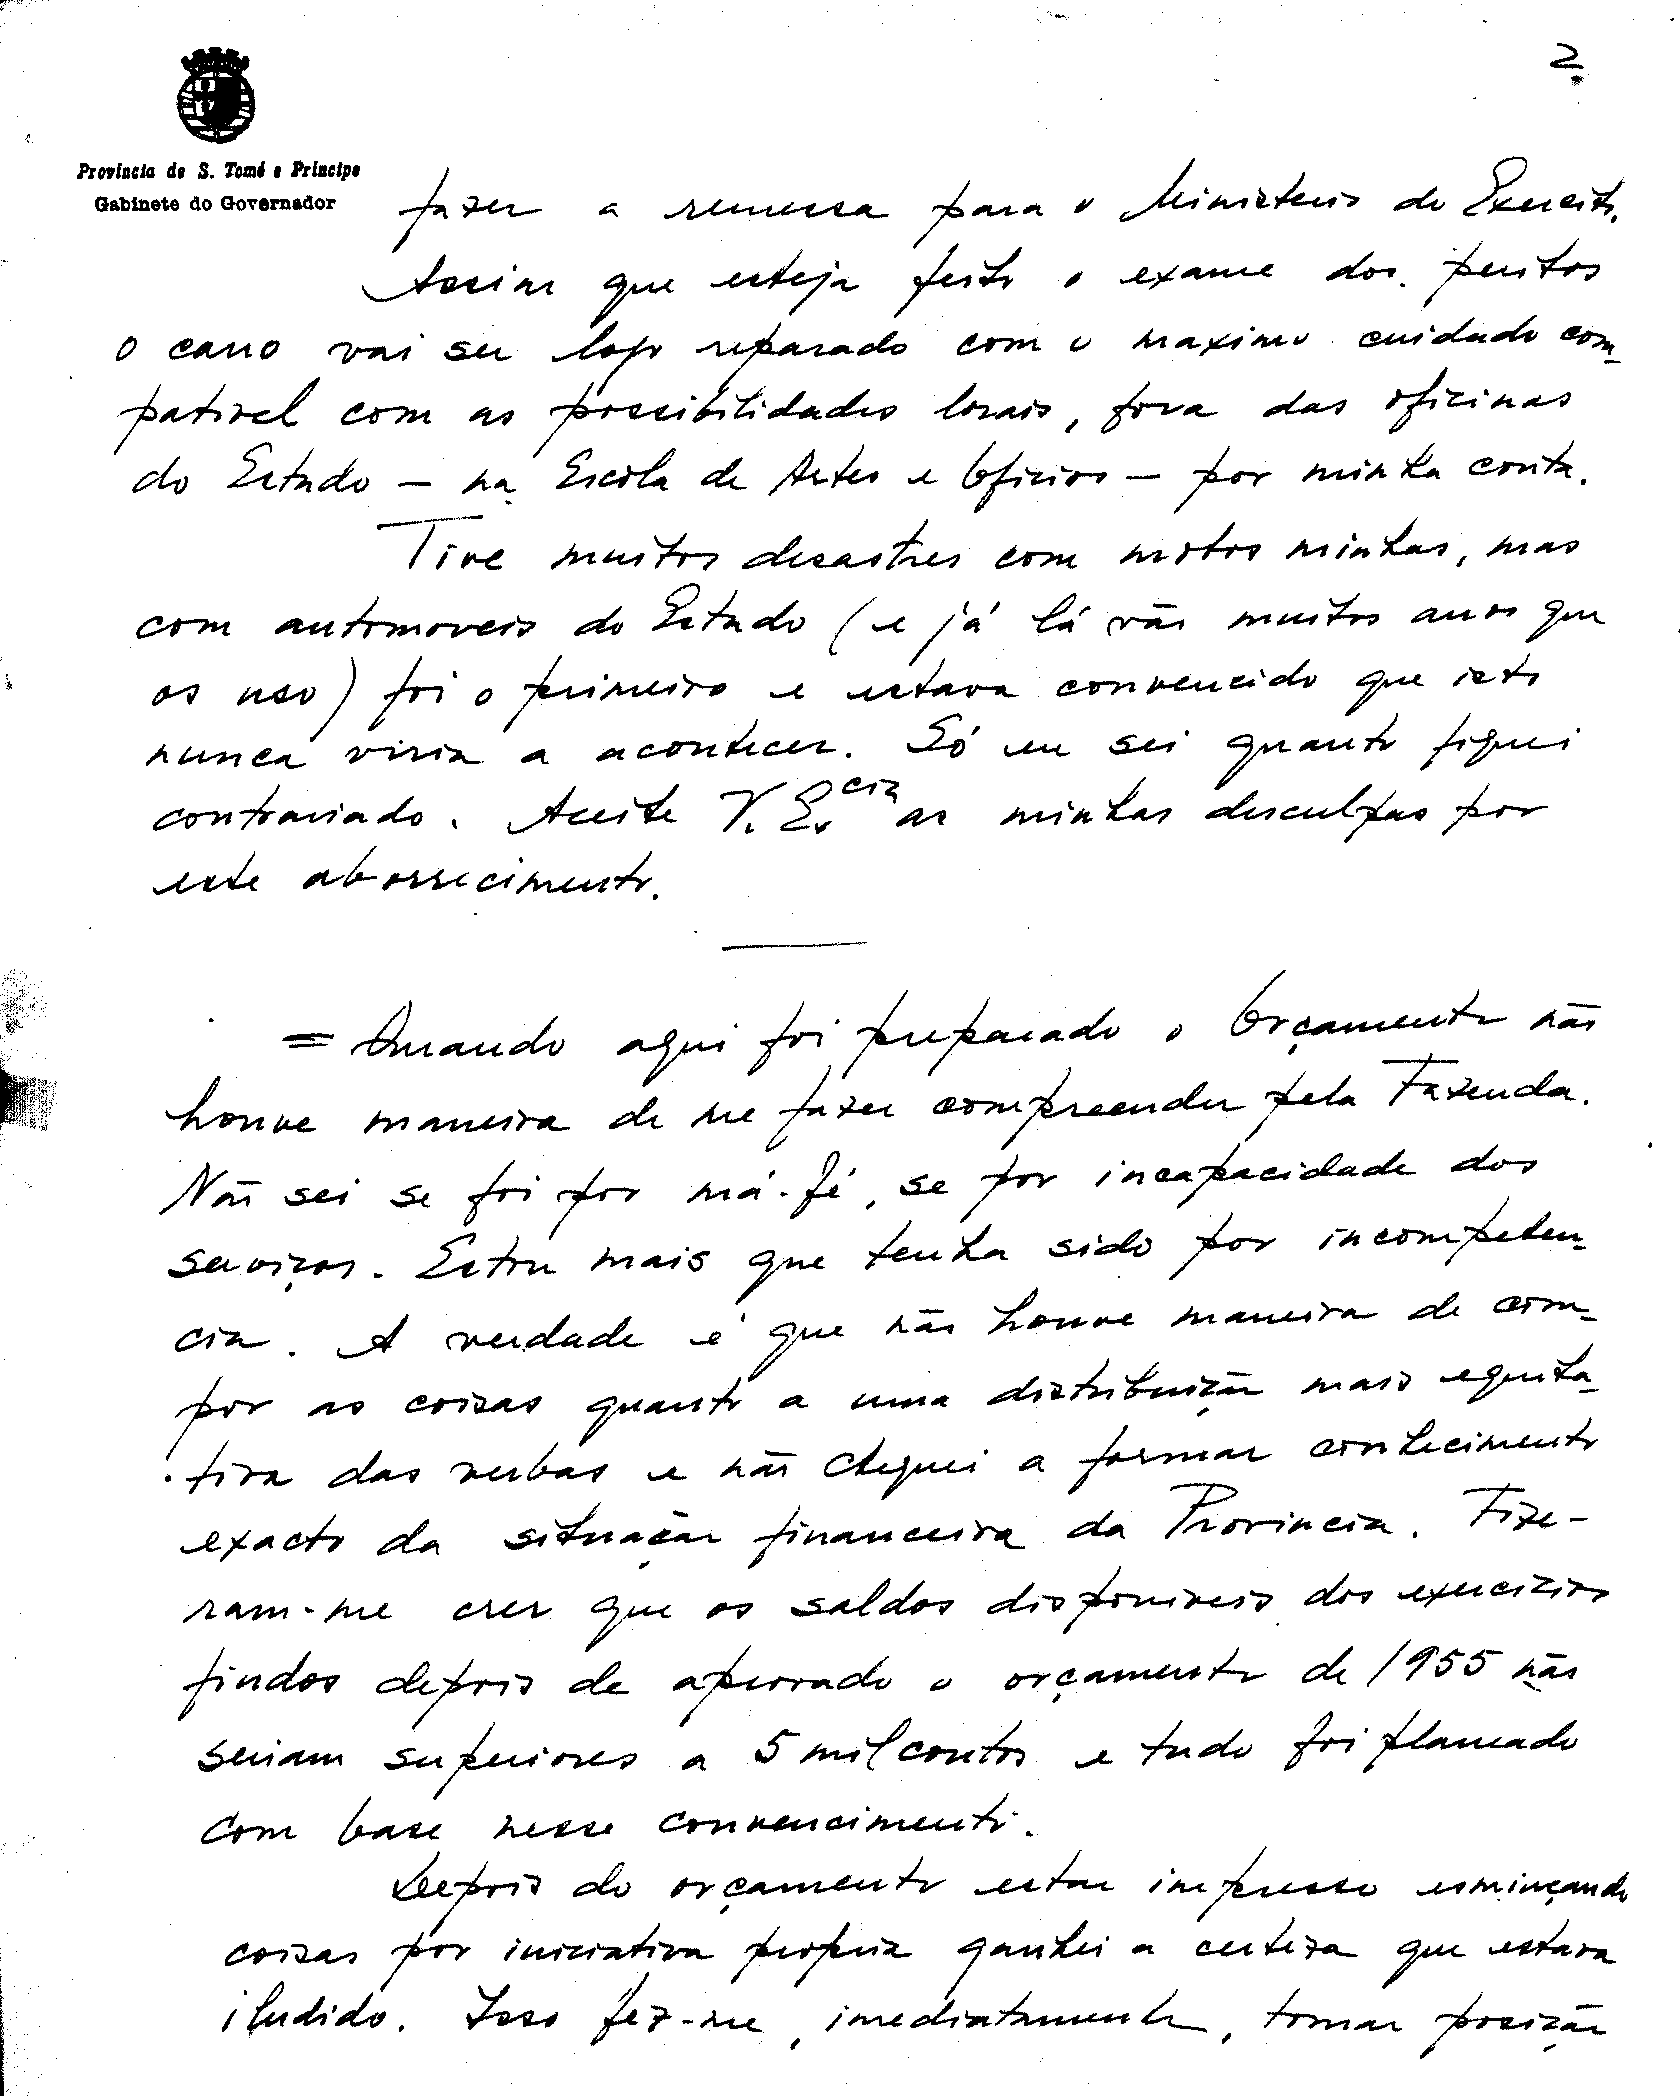 2.
Provincia de S. Tomé e Principe
Gabinete do Governador
fazer a remessa para o Ministerio do Exercito.
Assim que esteja feito o exame dos peritos
o carro vai ser logo reparado com o maximo cuidado com-
pativel com as possibilidades locais, fora das oficinas
do Estado — na Escola de Artes e Oficios — por minha conta.
Tive muitos desastres com motos minhas, mas
com automoveis do Estado (e já lá vão muitos anos que
os uso) foi o primeiro e estava convencido que isto
nunca viria a acontecer. Só eu sei quanto fiquei
contrariado. Aceite V. Ex.cia as minhas desculpas por
este aborrecimento.
= Quando aqui foi preparado o Orçamento não
houve maneira de me fazer compreender pela Fazenda.
Não sei se foi por má-fé, se por incapacidade dos
serviços. Estou mais que tenha sido por incompeten-
cia. A verdade é que não houve maneira de com-
por as coisas quanto a uma distribuição mais equita-
tiva das verbas e não cheguei a formar conhecimento
exacto da situação financeira da Provincia. Fize-
ram-me crer que os saldos disponiveis dos exercicios
findos depois de aprovado o orçamento de 1955 não
seriam superiores a 5 mil contos e tudo foi planeado
com base nesse convencimento.
Depois do orçamento estar impresso esmiuçando
coisas por iniciativa propria ganhei a certeza que estava
iludido. Isso fez-me, imediatamente, tomar posição